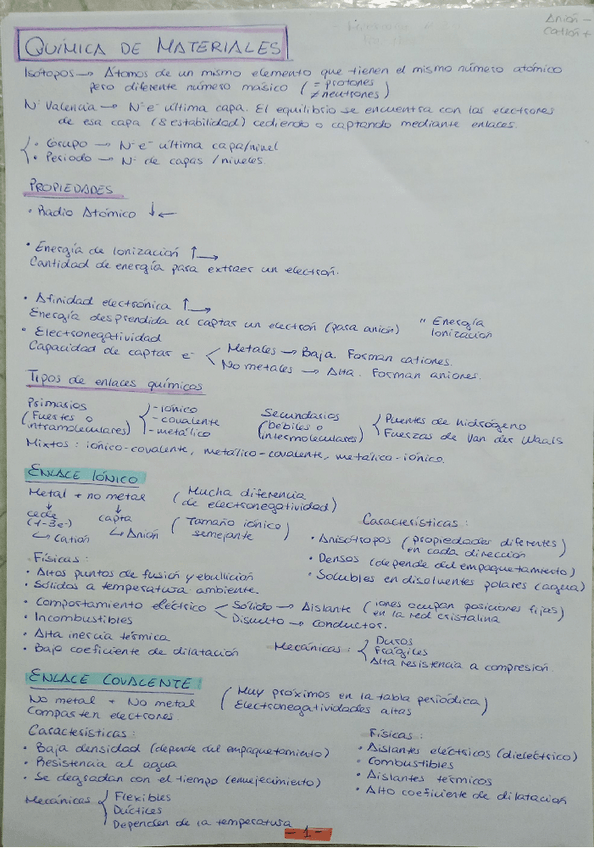 Anión -
Catión +
QUÍMICA DE MATERIALES
Isótopos → Átomos de un mismo elemento que tienen el mismo número atómico
pero diferente número másico ( = protones
≠ neutrones )
Nº Valencia → Nº e⁻ última capa. El equilibrio se encuentra con los electrones
de esa capa (8 estabilidad) cediendo o captando mediante enlaces.
• Grupo → Nº e⁻ última capa/nivel
• Periodo → Nº de capas / niveles.
PROPIEDADES
• Radio Atómico ↓←
• Energía de Ionización ↑→
Cantidad de energía para extraer un electrón.
• Afinidad electrónica ↑→
Energía desprendida al captar un electrón (para anión) " Energía
Ionización
• Electronegatividad
Capacidad de captar e⁻ < Metales → Baja. Forman cationes.
No metales → Alta. Forman aniones.
Tipos de enlaces químicos
Primarios (Fuertes o intramoleculares)
- iónico
- covalente
- metálico
Secundarios (Débiles o intermoleculares)
Puentes de hidrógeno
Fuerzas de Van der Waals
Mixtos: iónico-covalente, metálico-covalente, metálico-iónico.
ENLACE IÓNICO
Metal + no metal (Mucha diferencia
de electronegatividad)
cede (1-3e⁻) ↳ Catión
capta ↳ Anión
(Tamaño iónico
semejante)
Características:
• Anisótropos (propiedades diferentes
en cada dirección)
• Densos (depende del empaquetamiento)
• Solubles en disolventes polares (agua)
Físicas:
• Altos puntos de fusión y ebullición
• Sólidos a temperatura ambiente.
• Comportamiento eléctrico < Sólido → Aislante (iones ocupan posiciones fijas
en la red cristalina)
Disuelto → conductor.
• Incombustibles
• Alta inercia térmica
• Bajo coeficiente de dilatación
Mecánicas: Duros
Frágiles
Alta resistencia a compresión.
ENLACE COVALENTE:
No metal + No metal (Muy próximos en la tabla periódica)
Comparten electrones (Electronegatividades altas)
Características:
• Baja densidad (depende del empaquetamiento)
• Resistencia al agua
• Se degradan con el tiempo (envejecimiento)
Mecánicas Flexibles
Dúctiles
Dependen de la temperatura
Físicas:
• Aislantes eléctricos (dieléctrico)
• Combustibles
• Aislantes térmicos
• Alto coeficiente de dilatación
- 1 -